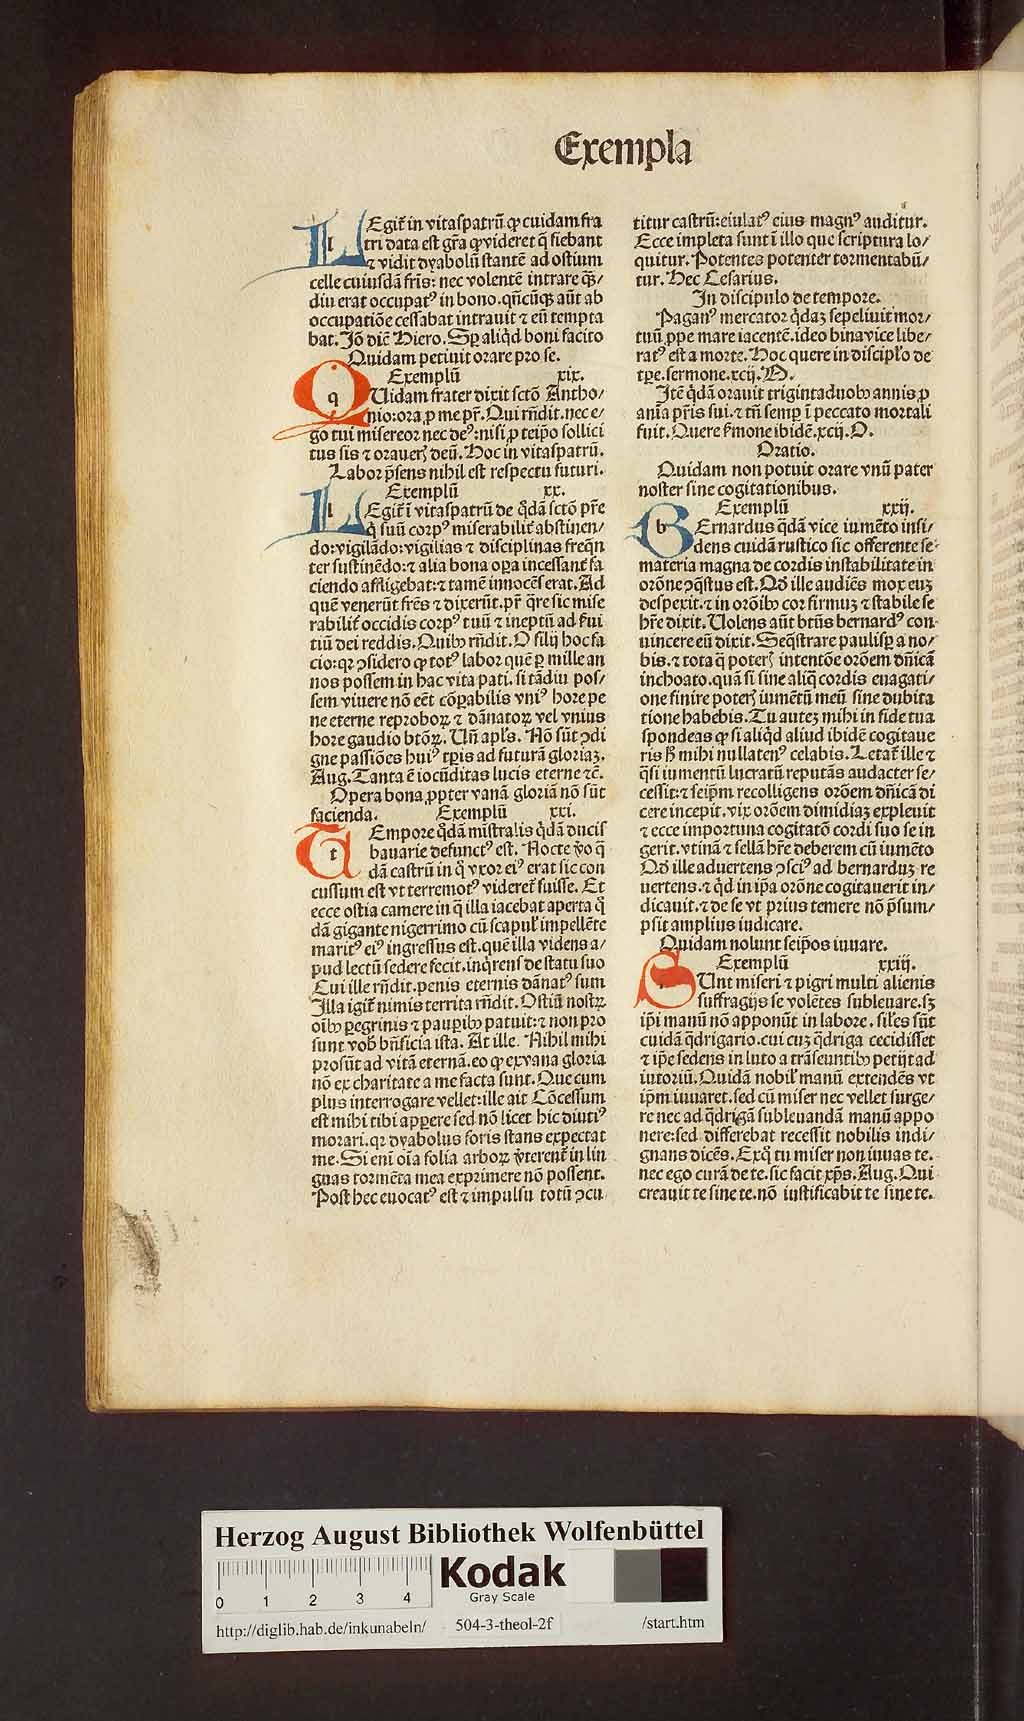 Exempla
LEgit̃ in vitaspatrũ ꝙ cuidam fra
tri data est gr̃a ꝙ videret q̃ fiebant
⁊ vidit dyabolũ stantẽ ad ostium
celle cuiusdã fris: nec volentẽ intrare qͣꝫ/
diu erat occupatꝰ in bono. qñcũqꝫ aũt ab
occupatiõe cessabat intrauit ⁊ eũ tempta
bat. Jõ diẽ Hiero. Sꝑ aliqͥd boni facito
Quidam petiuit orare pro se.
Exemplũ xix.
QUidam frater dixit sctõ Antho/
nio: ora ꝓ me pr̃. Qui rñdit. nec e/
go tui misereor nec deꝰ: nisi ꝓ teip̃o sollici
tus sis ⁊ oraueris deũ. Hoc in vitaspatrũ.
Labor p̃sens nihil est respectu futuri.
Exemplũ xx.
LEgit̃ ĩ vitaspatrũ de qͦdã sctõ pr̃e
q̃ suũ corpꝰ miserabilit̃ abstinen/
do: vigilãdo: vigilias ⁊ disciplinas freq̃n
ter sustinẽdo: ⁊ alia bona oꝑa incessant̃ fa
ciendo affligebat: ⁊ tamẽ innocẽs erat. Ad
quẽ venerũt frẽs ⁊ dixerũt. pr̃ q̃re sic mise
rabilit̃ occidis corpꝰ tuũ ⁊ ineptũ ad s̃ui
tiũ dei reddis. Quibꝫ rñdit. O filij hoc fa
cio: qꝛ ꝯsidero ꝙ totꝰ labor quẽ ꝑ mille an
nos possem in hac vita pati. si tãdiu pos/
sem viuere nõ eẽt cõꝑabilis vniꝰ hore pe
ne eterne reproboꝝ ⁊ dãnatoꝝ vel vnius
hore gaudio btõꝝ. Uñ apl̃s. Nõ sũt ꝯdi
gne passiões huiꝰ tp̃is ad futurã gloriaꝫ.
Aug. Tanta ẽ iocũditas lucis eterne ⁊c̃.
Opera bona ꝓpter vanã gloriã nõ sũt
facienda. Exemplũ xxi.
TEmpore qͦdã mĩstralis qͥdã ducis
bauarie defunctꝰ est. Nocte ṽo q̃
dã castrũ in qͦ vxor eiꝰ erat sic con
cussum est vt terremotꝰ videret̃ fuisse. Et
ecce ostia camere in q̃ illa iacebat aperta qͦ
dã gigante nigerrimo cũ scapul̃ impellẽte
maritꝰ eiꝰ ingressus est. quẽ illa videns a/
pud lectũ sedere fecit. inq̃rens de statu suo
Cui ille rñdit. penis eternis dãnatꝰ sum
Illa igit̃ nimis territa rñdit. Ostiũ nostꝝ
oĩbꝫ ꝑegrinis ⁊ pauꝑibꝫ patuit: ⁊ non pro
sunt vob̃ bñficia ista. At ille. Nihil mihi
prosũt ad vitã eternã. eo ꝙ ex vana gloria
nõ ex charitate a me facta sunt. Que cum
plus interrogare vellet: ille ait Cõcessum
est mihi tibi apꝑere sed nõ licet hic diutiꝰ
morari. qꝛ dyabolus foris stans expectat
me. Si eni oĩa folia arboꝝ ṽterent̃ in lin
guas tormẽta mea exprimere nõ possent.
Post hec euocatꝰ est ⁊ impulsu totũ ꝯcu
titur castrũ: eiulatꝰ eius magnꝰ auditur.
Ecce impleta sunt ĩ illo que scriptura lo/
quitur. Potentes potenter tormentabũ/
tur. Hec Cesarius.
In discipulo de tempore.
Paganꝰ mercator qͥdaꝫ sepeliuit mor/
tuũ ꝓpe mare iacentẽ. ideo bina vice libe/
ratꝰ est a morte. Hoc quere in discipl̃o de
tp̃e. sermone. xcij. N.
Itẽ qͥdã orauit triginta duobꝫ annis ꝓ
ania pr̃is sui. ⁊ tñ semꝑ ĩ peccato mortali
fuit. Quere s̃mone ibidẽ. xcij. O.
Oratio.
Quidam non potuit orare vnũ pater
noster sine cogitationibus.
Exemplũ xxij.
BErnardus qͣdã vice iumẽto insi/
dens cuidã rustico sic offerente se
materia magna de cordis instabilitate in
orõne ꝯq̃stus est. Qð ille audiẽs mox euꝫ
despexit. ⁊ in orõibꝫ cor firmuꝫ ⁊ stabile se
hr̃e dixit. Uolens aũt btũs bernardꝰ con
uincere eũ dixit. Seq̃strare paulisꝑ a no/
bis. ⁊ tota qͣ poteris intentõe orõem dñicã
inchoato. quã si sine aliqͣ cordis euagati/
one finire poteris iumẽtũ meũ sine dubita
tione habebis. Tu autẽꝫ mihi in fide tua
spondeas ꝙ si aliqͥd aliud ibidẽ cogitaue
ris hͦ mihi nullatenꝰ celabis. Letat̃ ille ⁊
qͣsi iumentũ lucratũ reputãs audacter se/
cessit: ⁊ seip̃m recolligens orõem dñicã di
cere incepit. vix orõem dimidiaꝫ expleuit
⁊ ecce importuna cogitatõ cordi suo se in
gerit. vtinã ⁊ sellã hr̃e deberem cũ iumẽto
Qð ille aduertens ꝯsciꝰ ad bernarduꝫ re
uertens. ⁊ qͥd in ip̃a orõne cogitauerit in/
dicauit. ⁊ de se vt prius temere nõ p̃sum/
psit amplius iudicare.
Quidam nolunt seip̃os iuuare.
Exemplũ xxiij.
SUnt miseri ⁊ pigri multi alienis
suffragijs se volẽtes subleuare. sꝫ
ip̃i manũ nõ apponũt in labore. sil̃es sũt
cuidã qͣdrigario. cui cuꝫ qͣdriga cecidisset
⁊ ip̃e sedens in luto a trãseuntibꝫ petijt ad
iutoriũ. Quidã nobil̃ manũ extendẽs vt
ip̃m iuuaret. sed cũ miser nec vellet surge/
re nec ad qͣdrigã subleuandã manũ appo
nere: sed differebat recessit nobilis indi/
gnans dicẽs. Ex qͦ tu miser non iuuas te.
nec ego curã de te. sic facit xp̃s. Aug. Qui
creauit te sine te. nõ iustificabit te sine te.
Herzog August Bibliothek Wolfenbüttel
0 1 2 3 4
Kodak
Gray Scale
http://diglib.hab.de/inkunabeln/ 504-3-theol-2f /start.htm